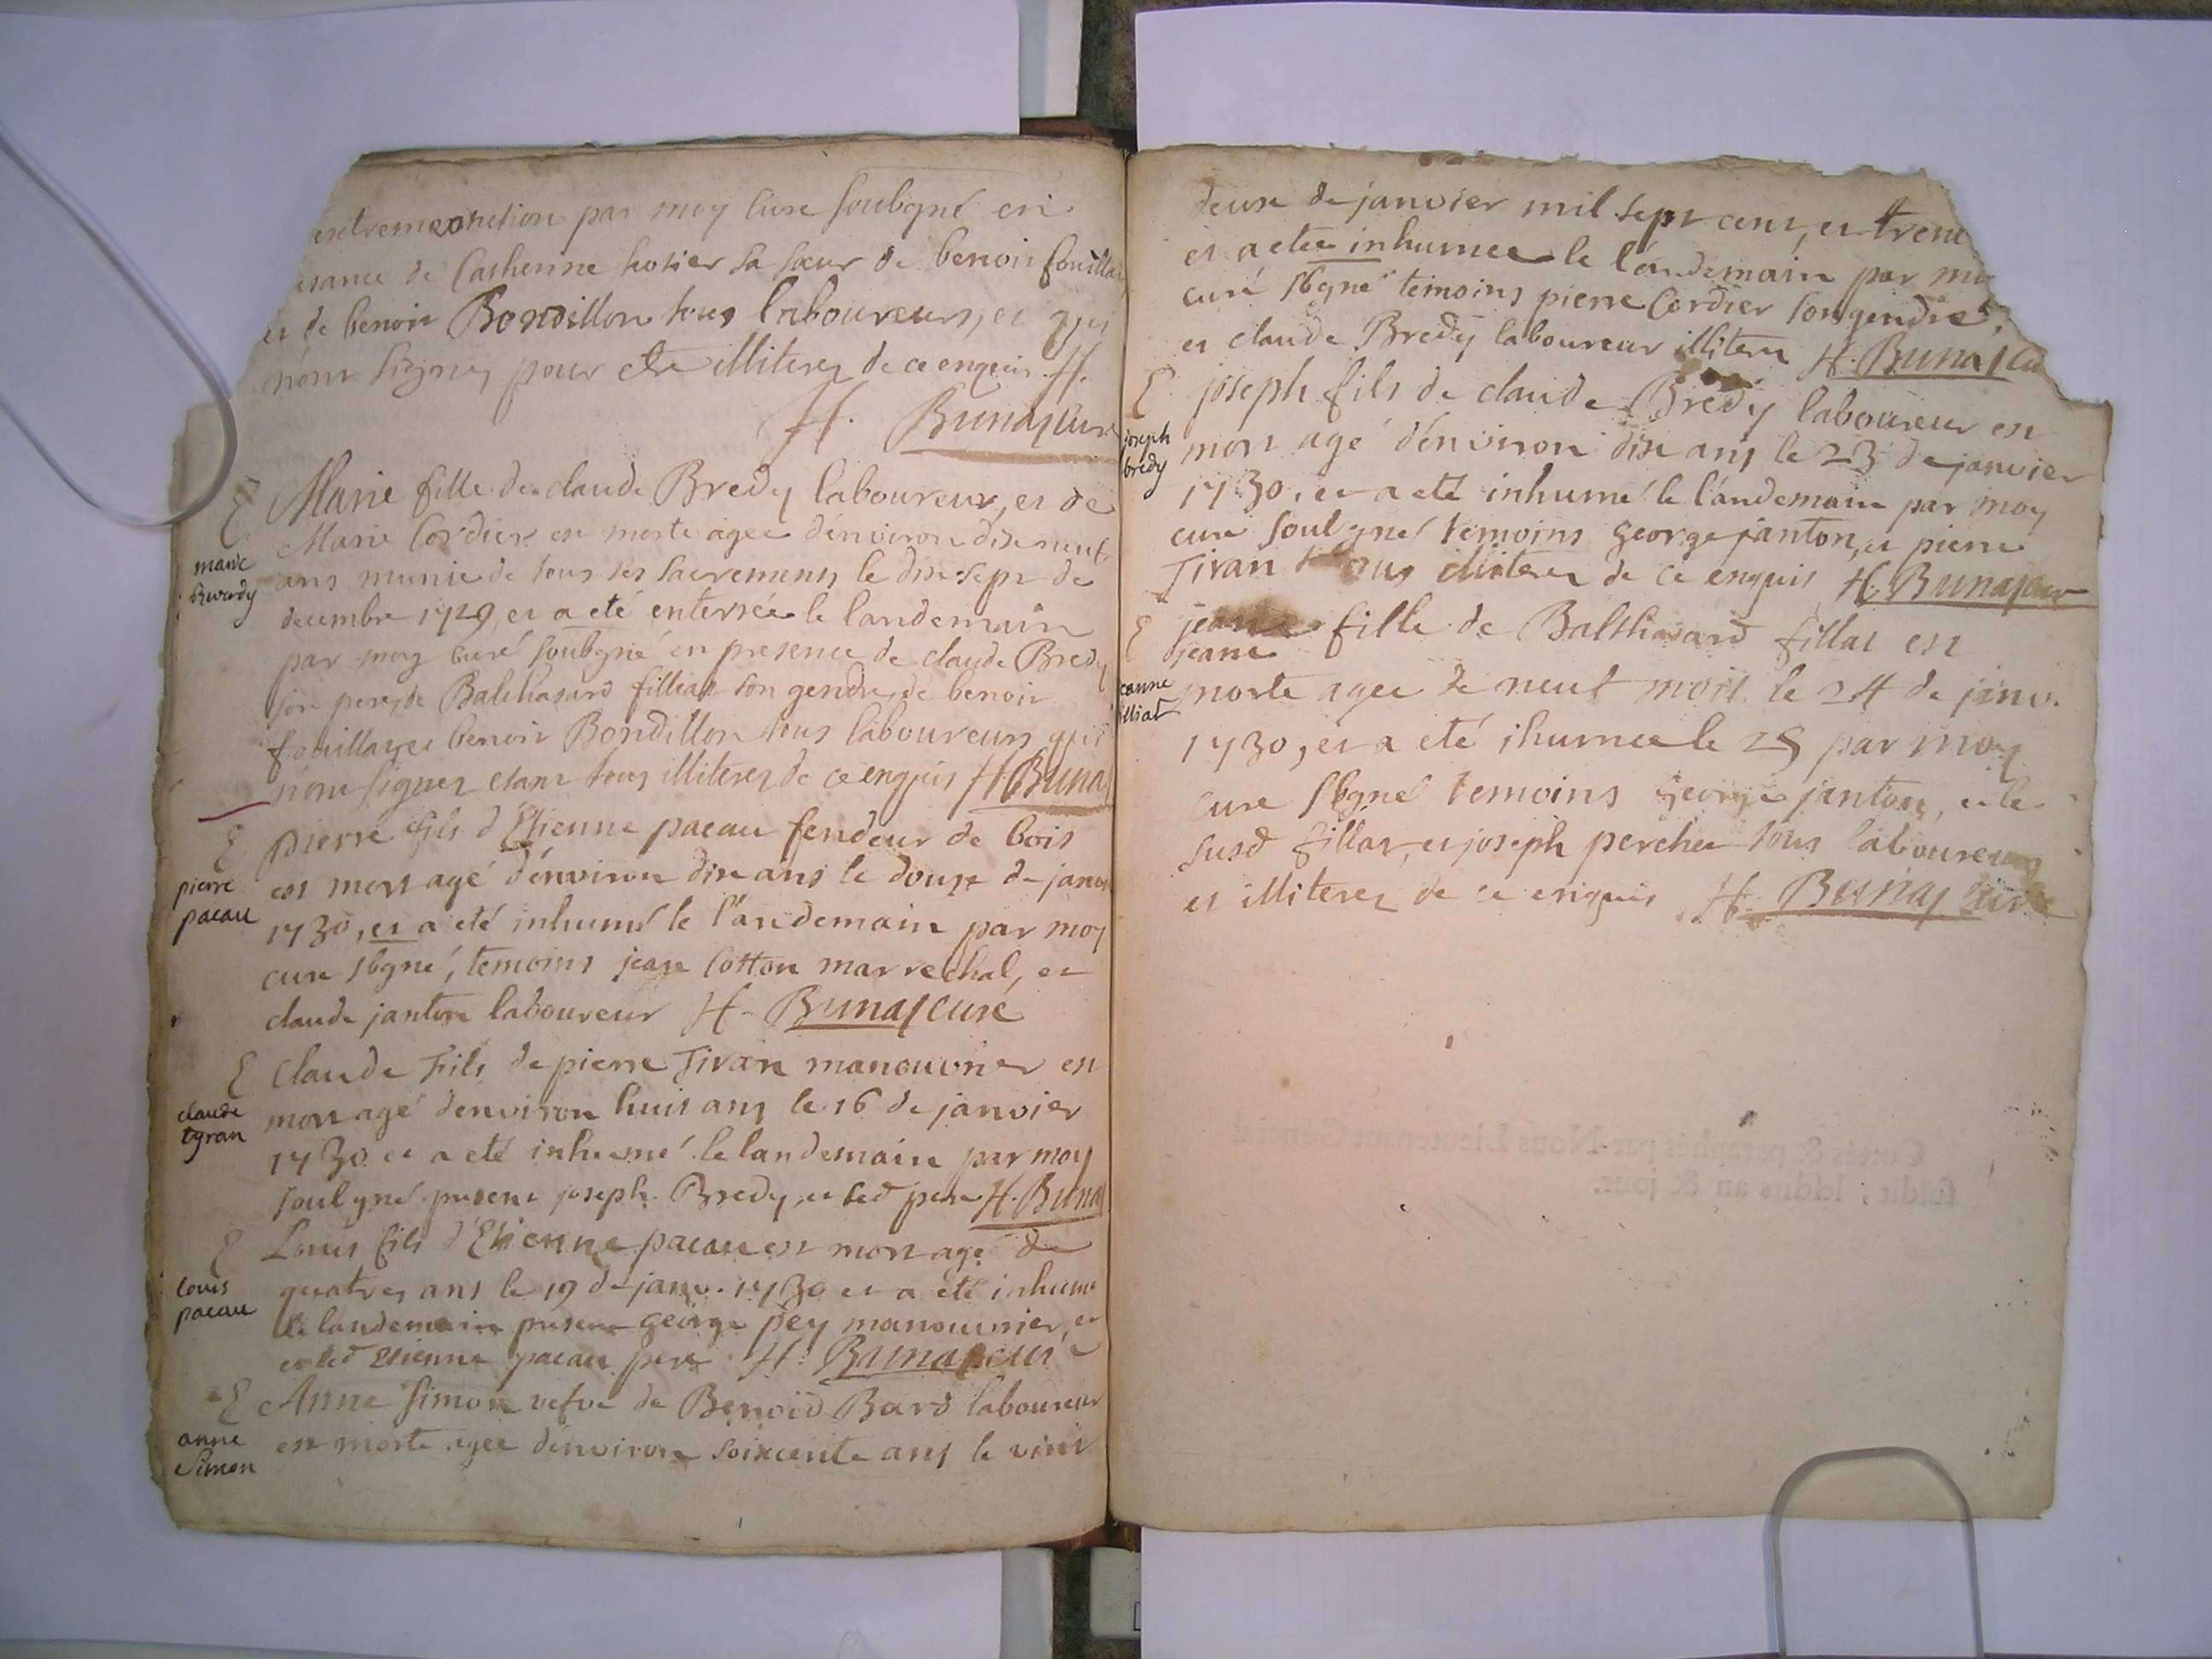 extremeonction par moy cure soubgné en
de Catherine sa sœur de benoit fouilla
et de benoit Bondillon tous laboureurs, et qui
n'ont signez pour etre illiterez de ce enquis H.
H. Bunaz curé
E
Marie fille de claude Bredy laboureur, et de
Marie Cordier est morte agee d'environ dixneuf
marie
Bready
ans munie de tous ses sacrements le dixsept de
decembre 1729, et a eté enterrée le landemain
par moy curé soubgné en presence de claude Bredy
son pere, de Balthasard filliat son gendre, de benoit
fouillay et benoit Bondillon tous laboureurs qui
n'ont signez etant tous illiterez de ce enquis H. Bunaz
E
pierre fils d'Etienne pacau fendeur de bois
pierre
pacau
est mort agé d'environ dix ans le douze de janv
1730, et a eté inhumé le l'andemain par moy
cure sbgné, temoins jean Cotton marrechal, et
claude janton laboureur H. Bunaz curé
E
Claude fils de pierre Tiran manouvrier est
claude
tyran
mort agé d'environ huit ans le 16 de janvier
1730 et a eté inhumé le landemain par moy
soubgné present joseph Bredy, et led pere H. Buna
E
Louis fils d'Etienne pacau est mort agé de
louis
pacau
quatres ans le 19 de janv. 1730 et a été inhumé
le landemain present george pey manouvrier, et
et led Etienne pacau pere H. Bunaz curé
E
Anne simon vefve de Benoid Bard laboureur
anne
simon
est morte agee d'environ soixcente ans le vint
deux de janvier mil sept cent, et trent
et a etee inhumee le l'andemain par mo
curé sbgné temoins pierre Cordier son gendre,
et claude Bredy laboureur illiterez H. Bunaz cu
E
joseph fils de claude Bredy laboureur est
joseph
bredy
mort agé d'environ dix ans le 23 de janvier
1730, et a eté inhumé le l'andemain par moy
cure soubgné temoins george janton, et pierre
Tiran tous illiterez de ce enquis H. Bunaz cur
E
jeanne fille de Balthasard fillat est
jeane
eanne
illiat
morte agee de neuf mois le 24 de janv.
1730, et a eté ihumee le 25 par moy
cure sbgné temoins george janton, et le
susd fillat, et joseph perchet tous laboureurs
et illiterez de ce enquis H. Bunaz curé
Cottés & paraphés par Nous Lieutenant Général
susdit, lesdits an & jour.